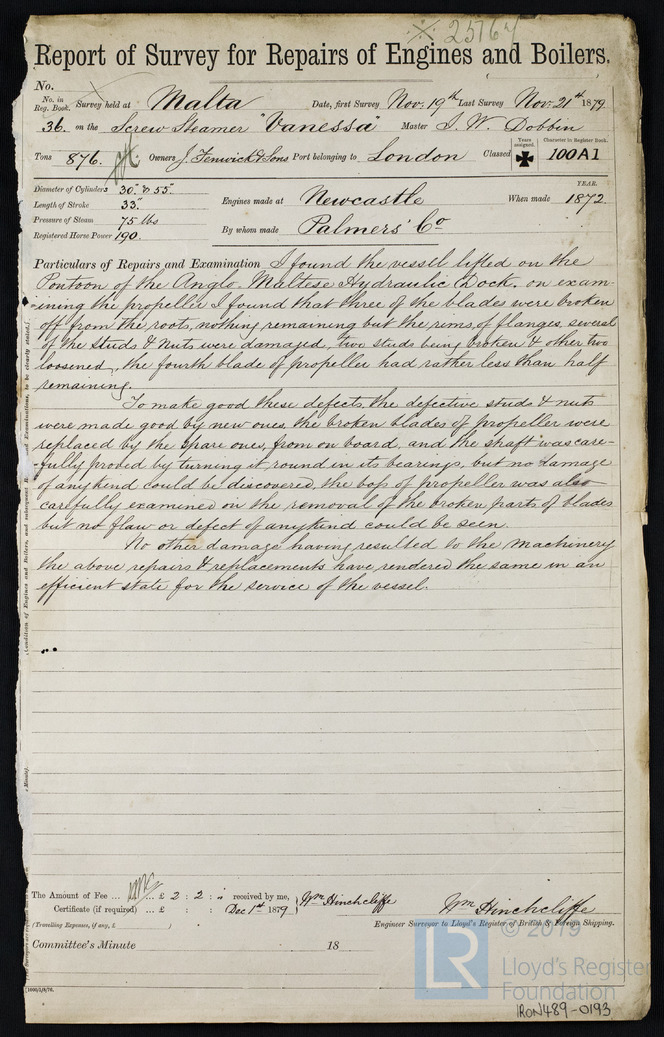 2576
Report of Survey for Repairs of Engines and Boilers.
No.
No. in Reg. Book. Survey held at Malta Date, first Survey Nov. 19th Last Survey Nov. 21st 1879
36. on the Screw Steamer "Vanessa" Master J. W. Dobbin
Tons 876. Owners J. Fenwick & Sons Port belonging to London Classed Years assigned Character in Register Book. 100A1
Diameter of Cylinders 30" & 55"
Length of Stroke 33"
Pressure of Steam 75 lbs
Registered Horse Power 190.
Engines made at Newcastle When made YEAR. 1872.
By whom made Palmers' Co
Particulars of Repairs and Examination I found the vessel lifted on the
Pontoon of the Anglo-Maltese Hydraulic Dock. on exam-
-ining the propeller I found that three of the blades were broken
off from the roots, nothing remaining but the rims of flanges, several
of the studs & nuts were damaged, two studs being broken & other two
loosened, the fourth blade of propeller had rather less than half
remaining.
To make good these defects, the defective studs & nuts
were made good by new ones, the broken blades of propeller were
replaced by the spare ones, from on board, and the shaft was care-
-fully proved by turning it round in its bearings, but no damage
of anykind could be discovered, the boss of propeller was also
carefully examined on the removal of the broken parts of blades
but no flaw or defect of anykind could be seen.
No other damage having resulted to the machinery
the above repairs & replacements have rendered the same in an
efficient state for the service of the vessel.
The Amount of Fee ... £ 2 : 2 : " received by me,
Certificate (if required) ... £ : : Dec 1st 1879
Wm Hinchcliffe
(Travelling Expenses, if any, £ )
Wm Hinchcliffe
Engineer Surveyor to Lloyd's Register of British & Foreign Shipping.
Committee's Minute 18
© 2019
LR
Lloyd's Register
Foundation
IRON489-0193